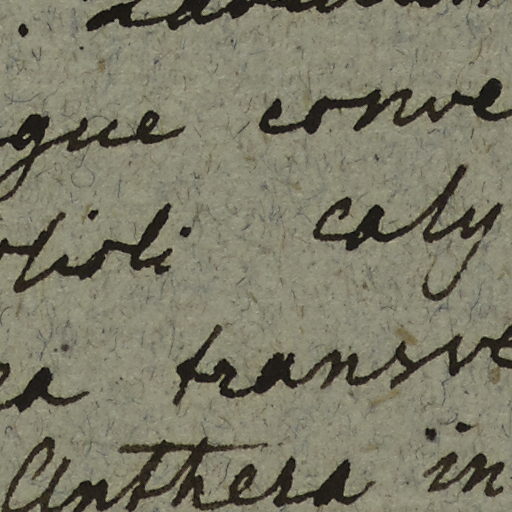 gue conve
olioli caly
ea transve
Anthera in